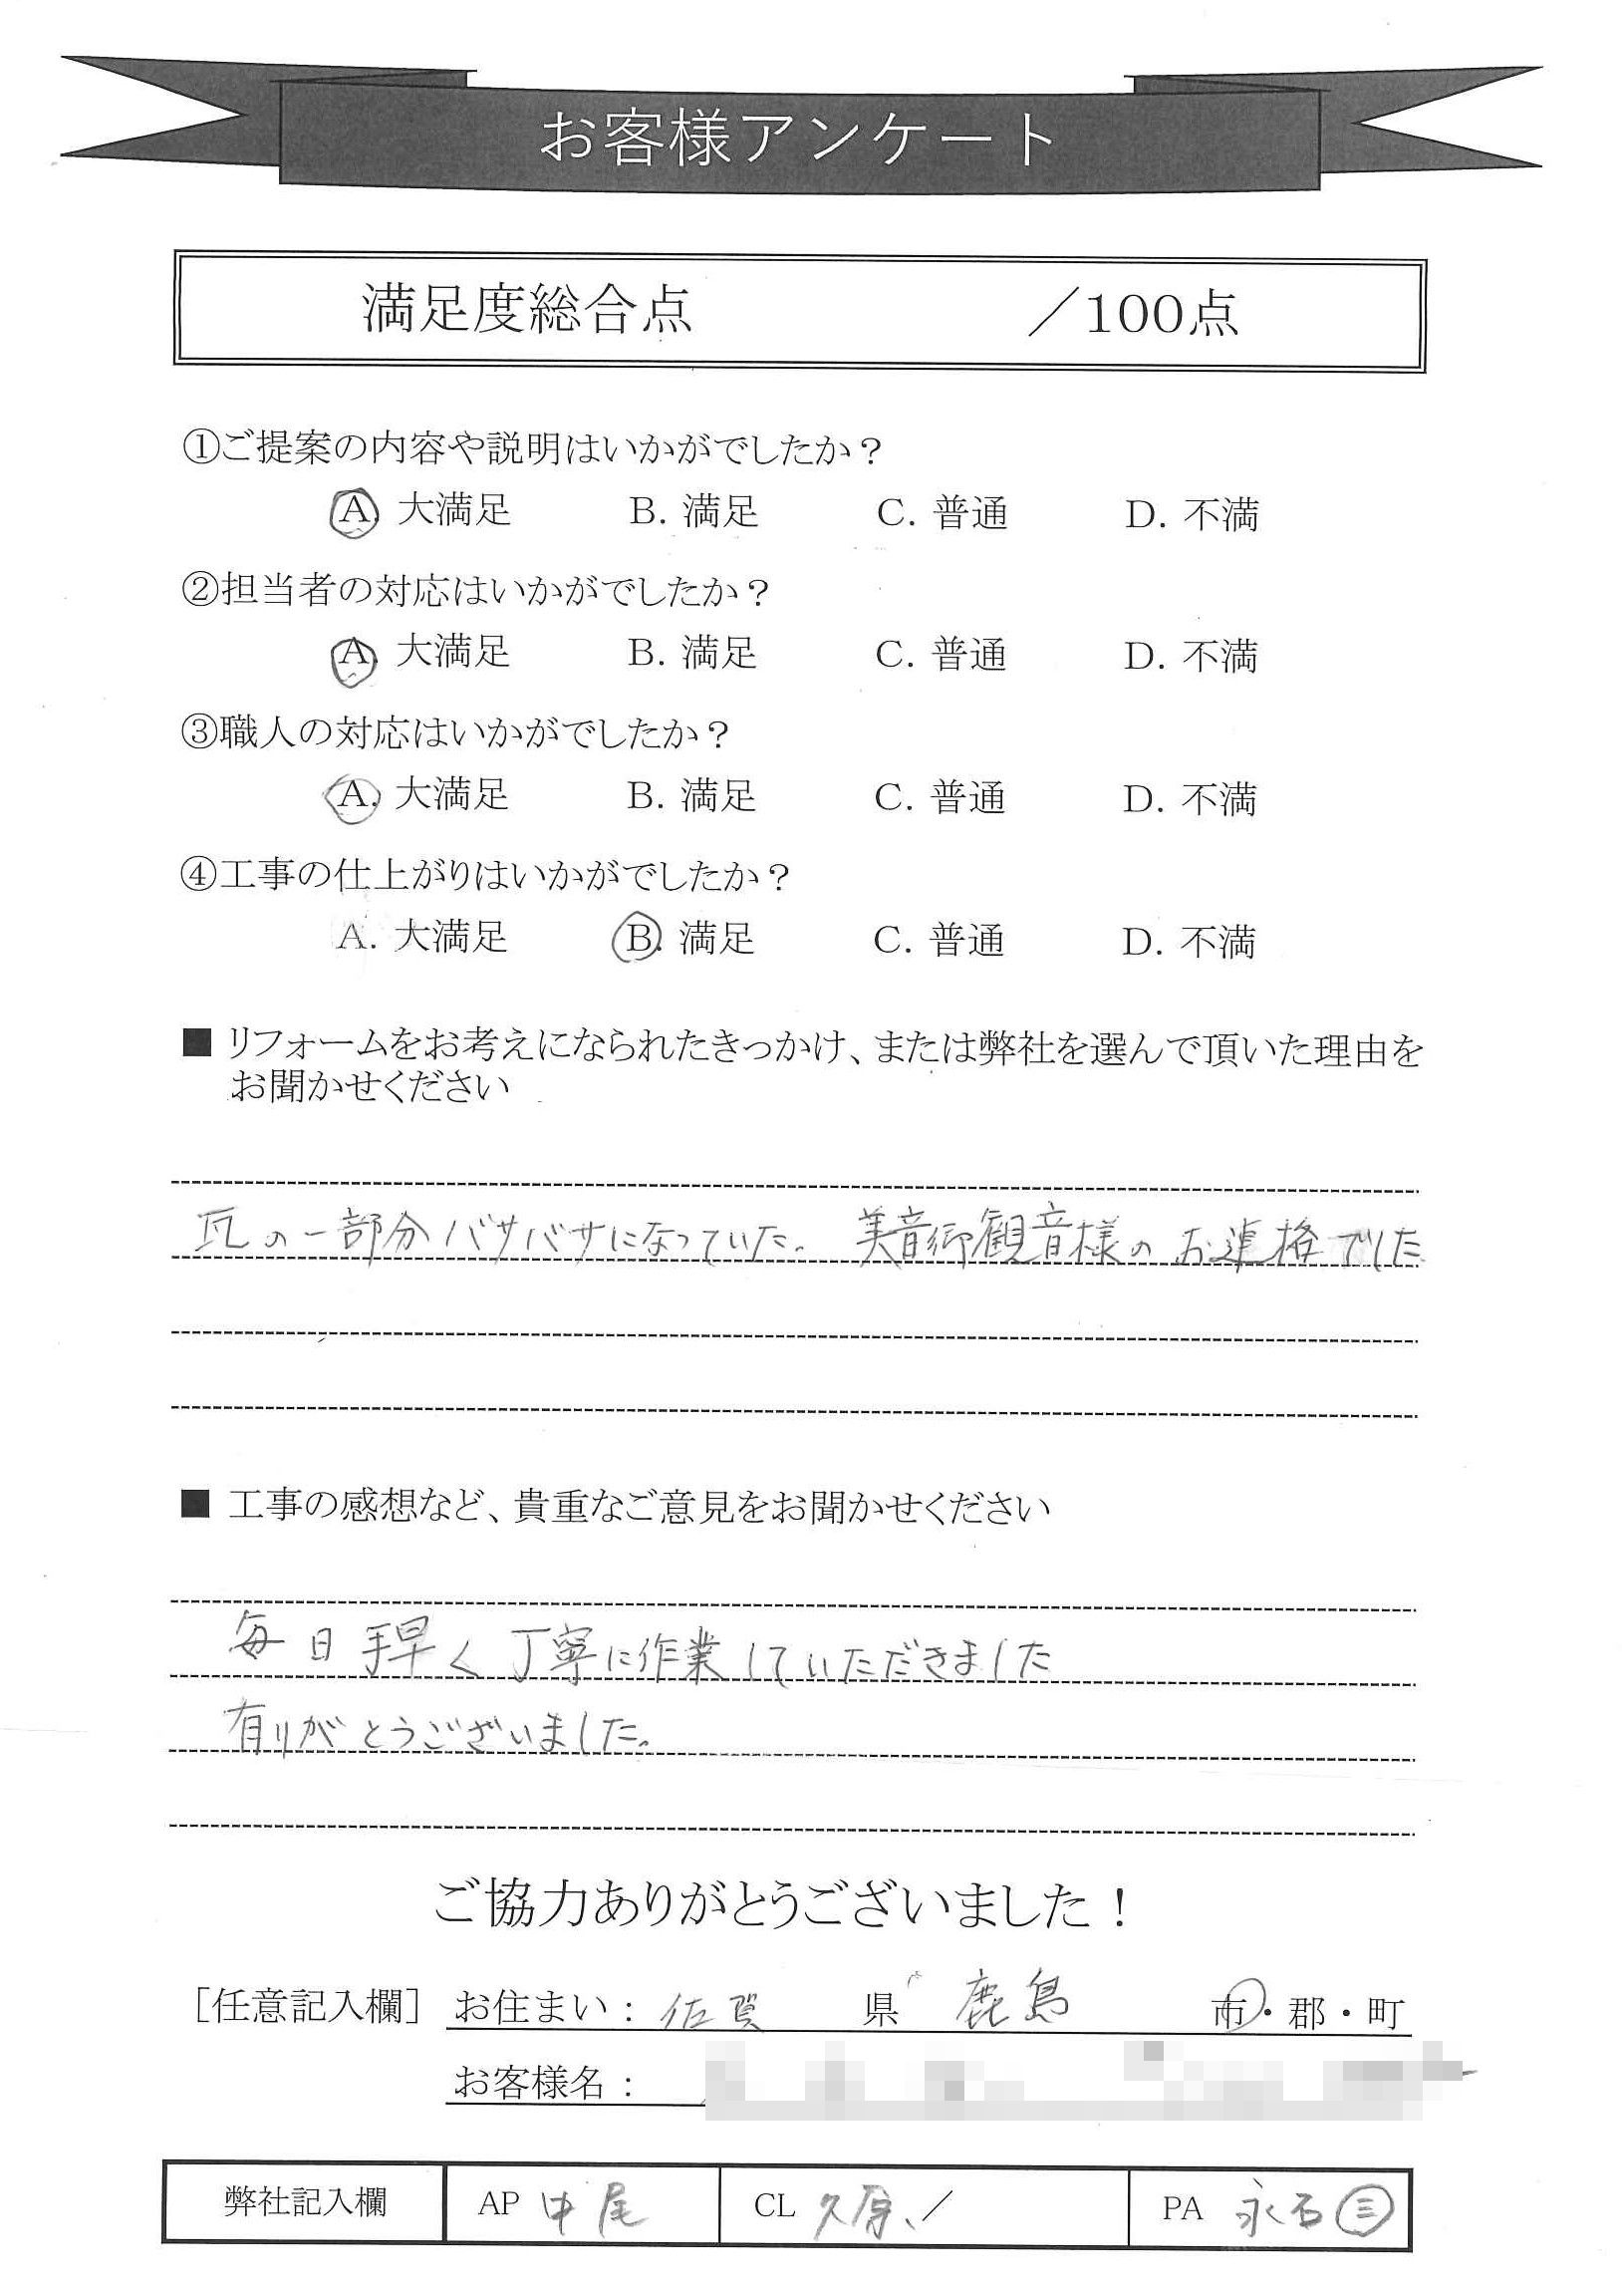 お客様アンケート
満足度総合点 ／100点
①ご提案の内容や説明はいかがでしたか？
A. 大満足 B. 満足 C. 普通 D. 不満
②担当者の対応はいかがでしたか？
A. 大満足 B. 満足 C. 普通 D. 不満
③職人の対応はいかがでしたか？
A. 大満足 B. 満足 C. 普通 D. 不満
④工事の仕上がりはいかがでしたか？
A. 大満足 B. 満足 C. 普通 D. 不満
■ リフォームをお考えになられたきっかけ、または弊社を選んで頂いた理由を
お聞かせください
瓦の一部分バサバサになっていた。 観音様のお連格でした
■ 工事の感想など、貴重なご意見をお聞かせください
毎日手早く丁寧に作業していただきました
有りがとうございました。
ご協力ありがとうございました！
［任意記入欄］ お住まい： 佐賀 県 鹿島 市・郡・町
お客様名：
弊社記入欄 AP 中尾 CL 久原、／ PA 永石㊂